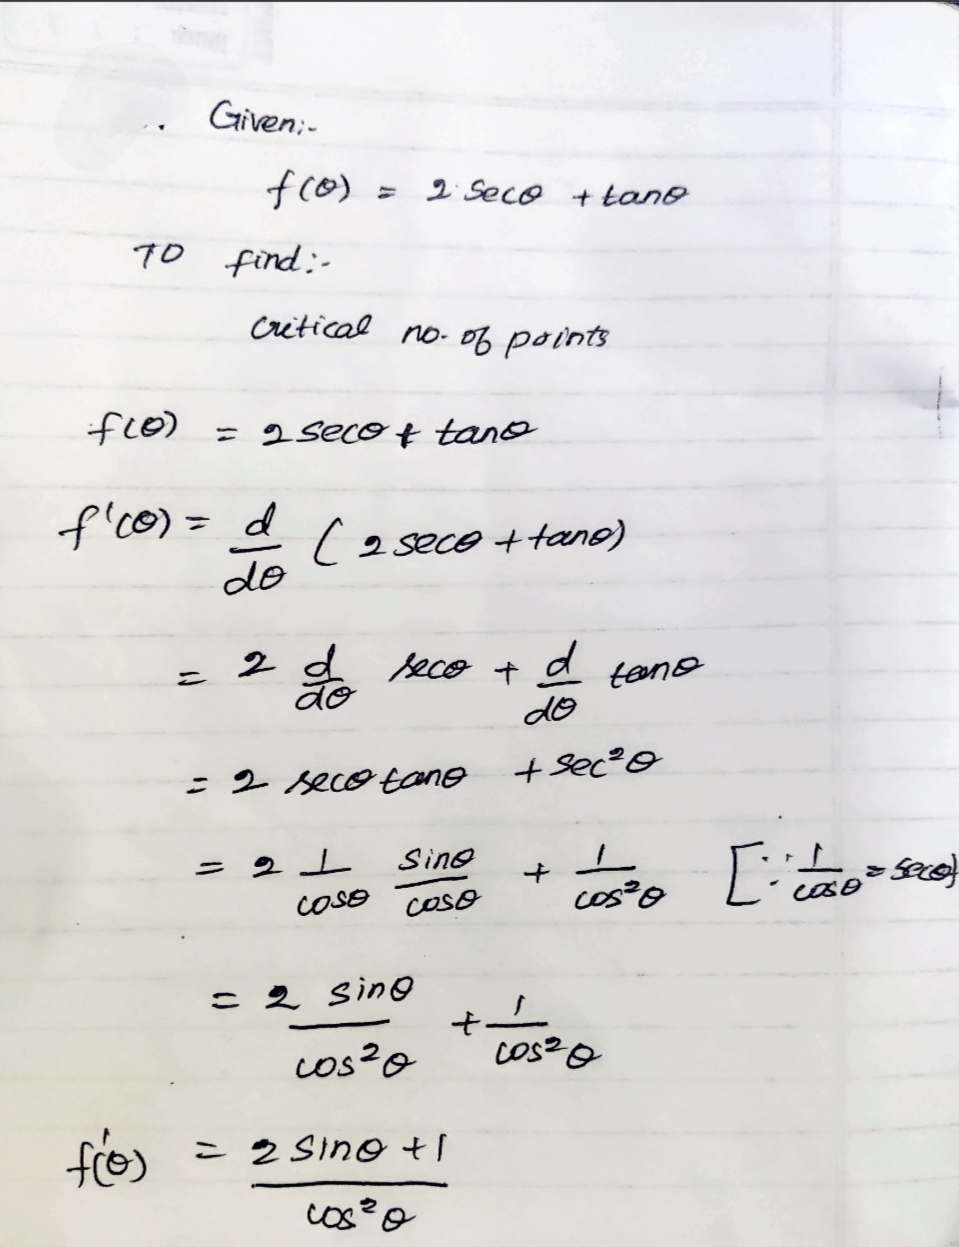 Given:-
f(θ) = 2 secθ + tanθ
TO find:-
Critical no. of points
f(θ) = 2 secθ + tanθ
f'(θ) = d/dθ (2 secθ + tanθ)
= 2 d/dθ secθ + d/dθ tanθ
= 2 secθ tanθ + sec²θ
= 2 1/cosθ sinθ/cosθ + 1/cos²θ [∵ 1/cosθ = secθ]
= 2 sinθ/cos²θ + 1/cos²θ
f'(θ) = 2 sinθ + 1/cos²θ